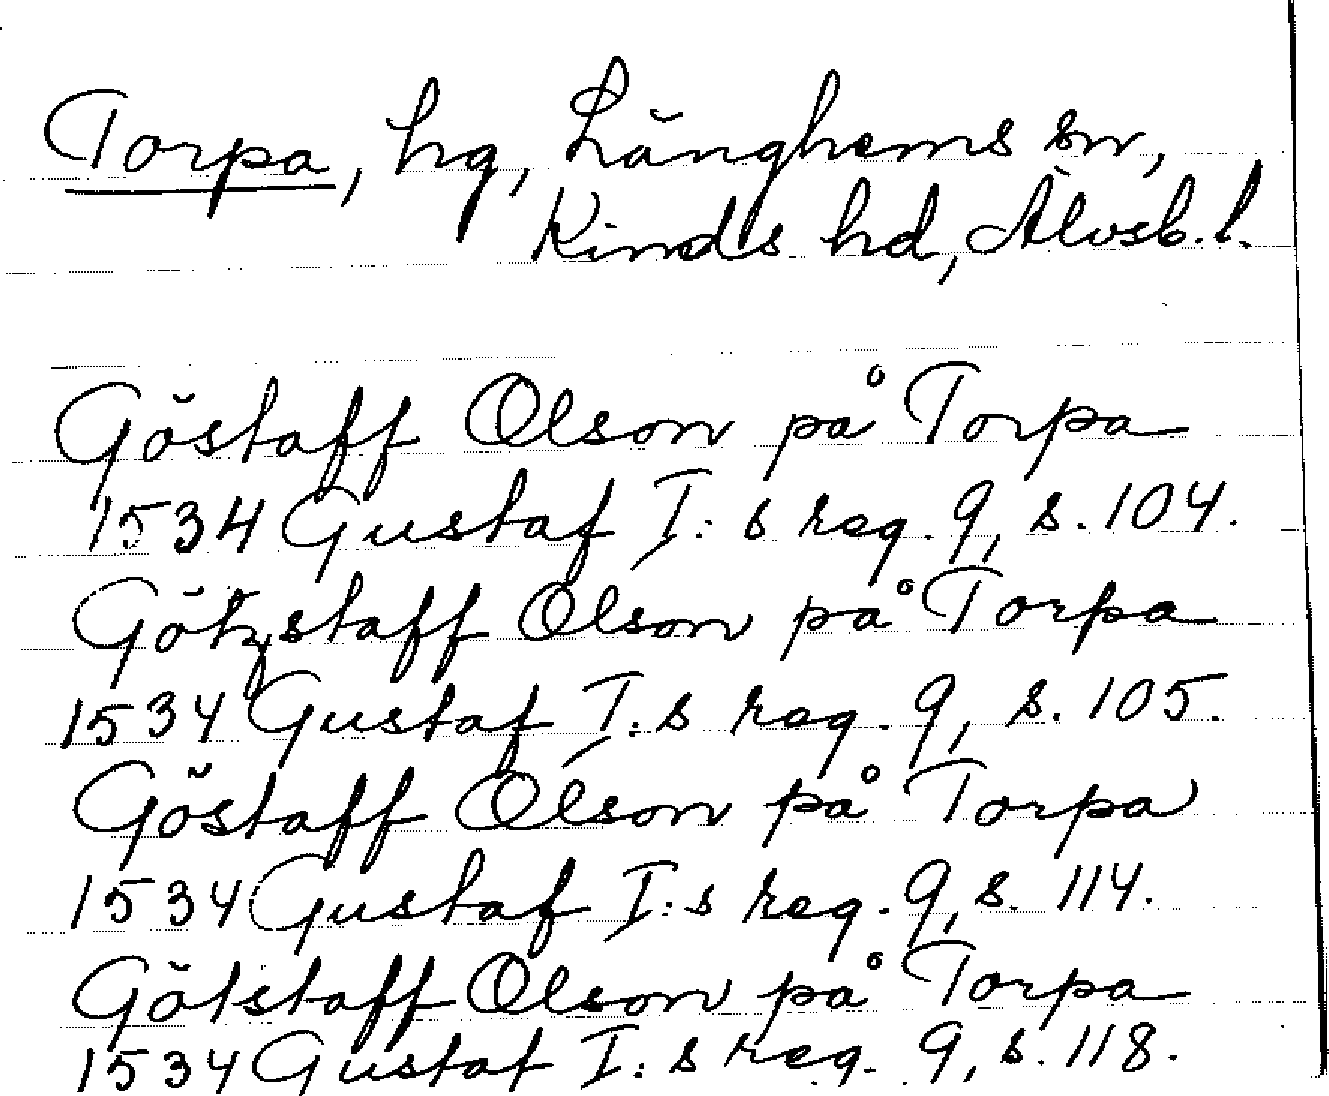 Torpa, hg, Länghems sn,
Kinds hd, Älvsb. l.
Göstaff Olson på Torpa
1534 Gustaf I:s reg. 9, s. 104.
Götzstaff Olson på Torpa
1534 Gustaf I:s reg. 9, s. 105.
Göstaff Olson på Torpa
1534 Gustaf I:s reg. 9, s. 114.
Götstaff Olson på Torpa
1534 Gustaf I:s reg. 9, s. 118.